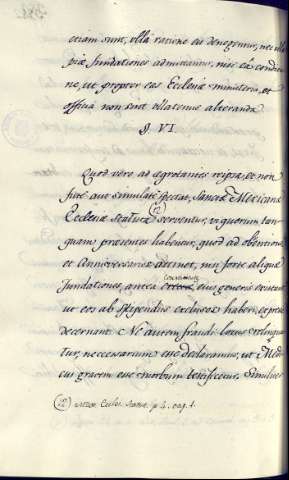 etiam sunt, ulla ratione eis denegentur, nec ulla
piæ fundationes admittantur, nisi ea conditio
ne, ut propter eas Ecclesiæ ministeria, et
officia non sint ullatenus alteranda.
§. VI.
Quod vero ad egrotantes vere, et non
ficte aut simulate spectat, Sanctæ Mexicanæ
Ecclesiæ statuta (12) serventur, vi quorum tan
quam præsentes habentur, quod ad obventiones
et Anniversaria attinet, ni forte aliquæ
fundationes, antea eius generis extent
ut eos ab stipendiis exclusos haberi, expresse
decernant. Ne autem fraudi locus relinqua
tur, necessarium esse declaramus, ut Medi
cus gravem esse morbum testificetur. Similiter
(12) Mex. Eccles. Statut. p. 2. pag. 1.